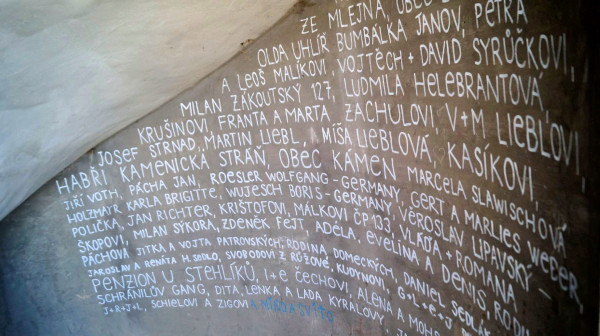 ZE MLEJNA, OBEC
OLDA UHLÍŘ BUMBÁLKA JANOV, PETRA
A LEOŠ MALÍKOVI, VOJTĚCH + DAVID SYRŮČKOVI,
MILAN ZÁKOUTSKÝ 127, LUDMILA HELEBRANTOVÁ
KRUŠINOVI, FRANTA A MARTA ZACHULOVI V+M LIEBLOVI,
JOSEF STRNAD, MARTIN LIEBL, MÍŠA LIEBLOVÁ, KAŠÍKOVI,
HABŘÍ KAMENICKÁ STRÁŇ, OBEC KÁMEN MARCELA SLAWISCHOVÁ
JIŘÍ VOTH, PÁCHA JAN, ROESLER WOLFGANG-GERMANY, GERT A MARLIES WEBER,
HOLZMAYR KARLA BRIGITTE, WUJESCH BORIS-GERMANY, VĚROSLAV LIPAVSKÝ -
POLIČKA, JAN RICHTER, KRIŠTOFOVI, MÁLKOVI ČP 133, VLÁĎA + ROMANA
ŠKOPOVI, MILAN SÝKORA, ZDENĚK FEJT, ADÉLA, EVELÍNA A DENIS
PÁCHOVA JITKA A VOJTA PATROVSKÝCH, RODINA DOMECKÝCH, DANIEL
JAROSLAV A RENÁTA H. SEDLO, SVOBODOVI Z RŮŽOVÉ, KUDYNOVI, G+L+E+J
PENZION U STEHLÍKŮ, I+E ČECHOVI, ALENA A
SCHRÁNILŮV GANG, DITA, LENKA A LADA KYRALOVY,
J+R+J+L, SCHIELOVI A ZIGOVI